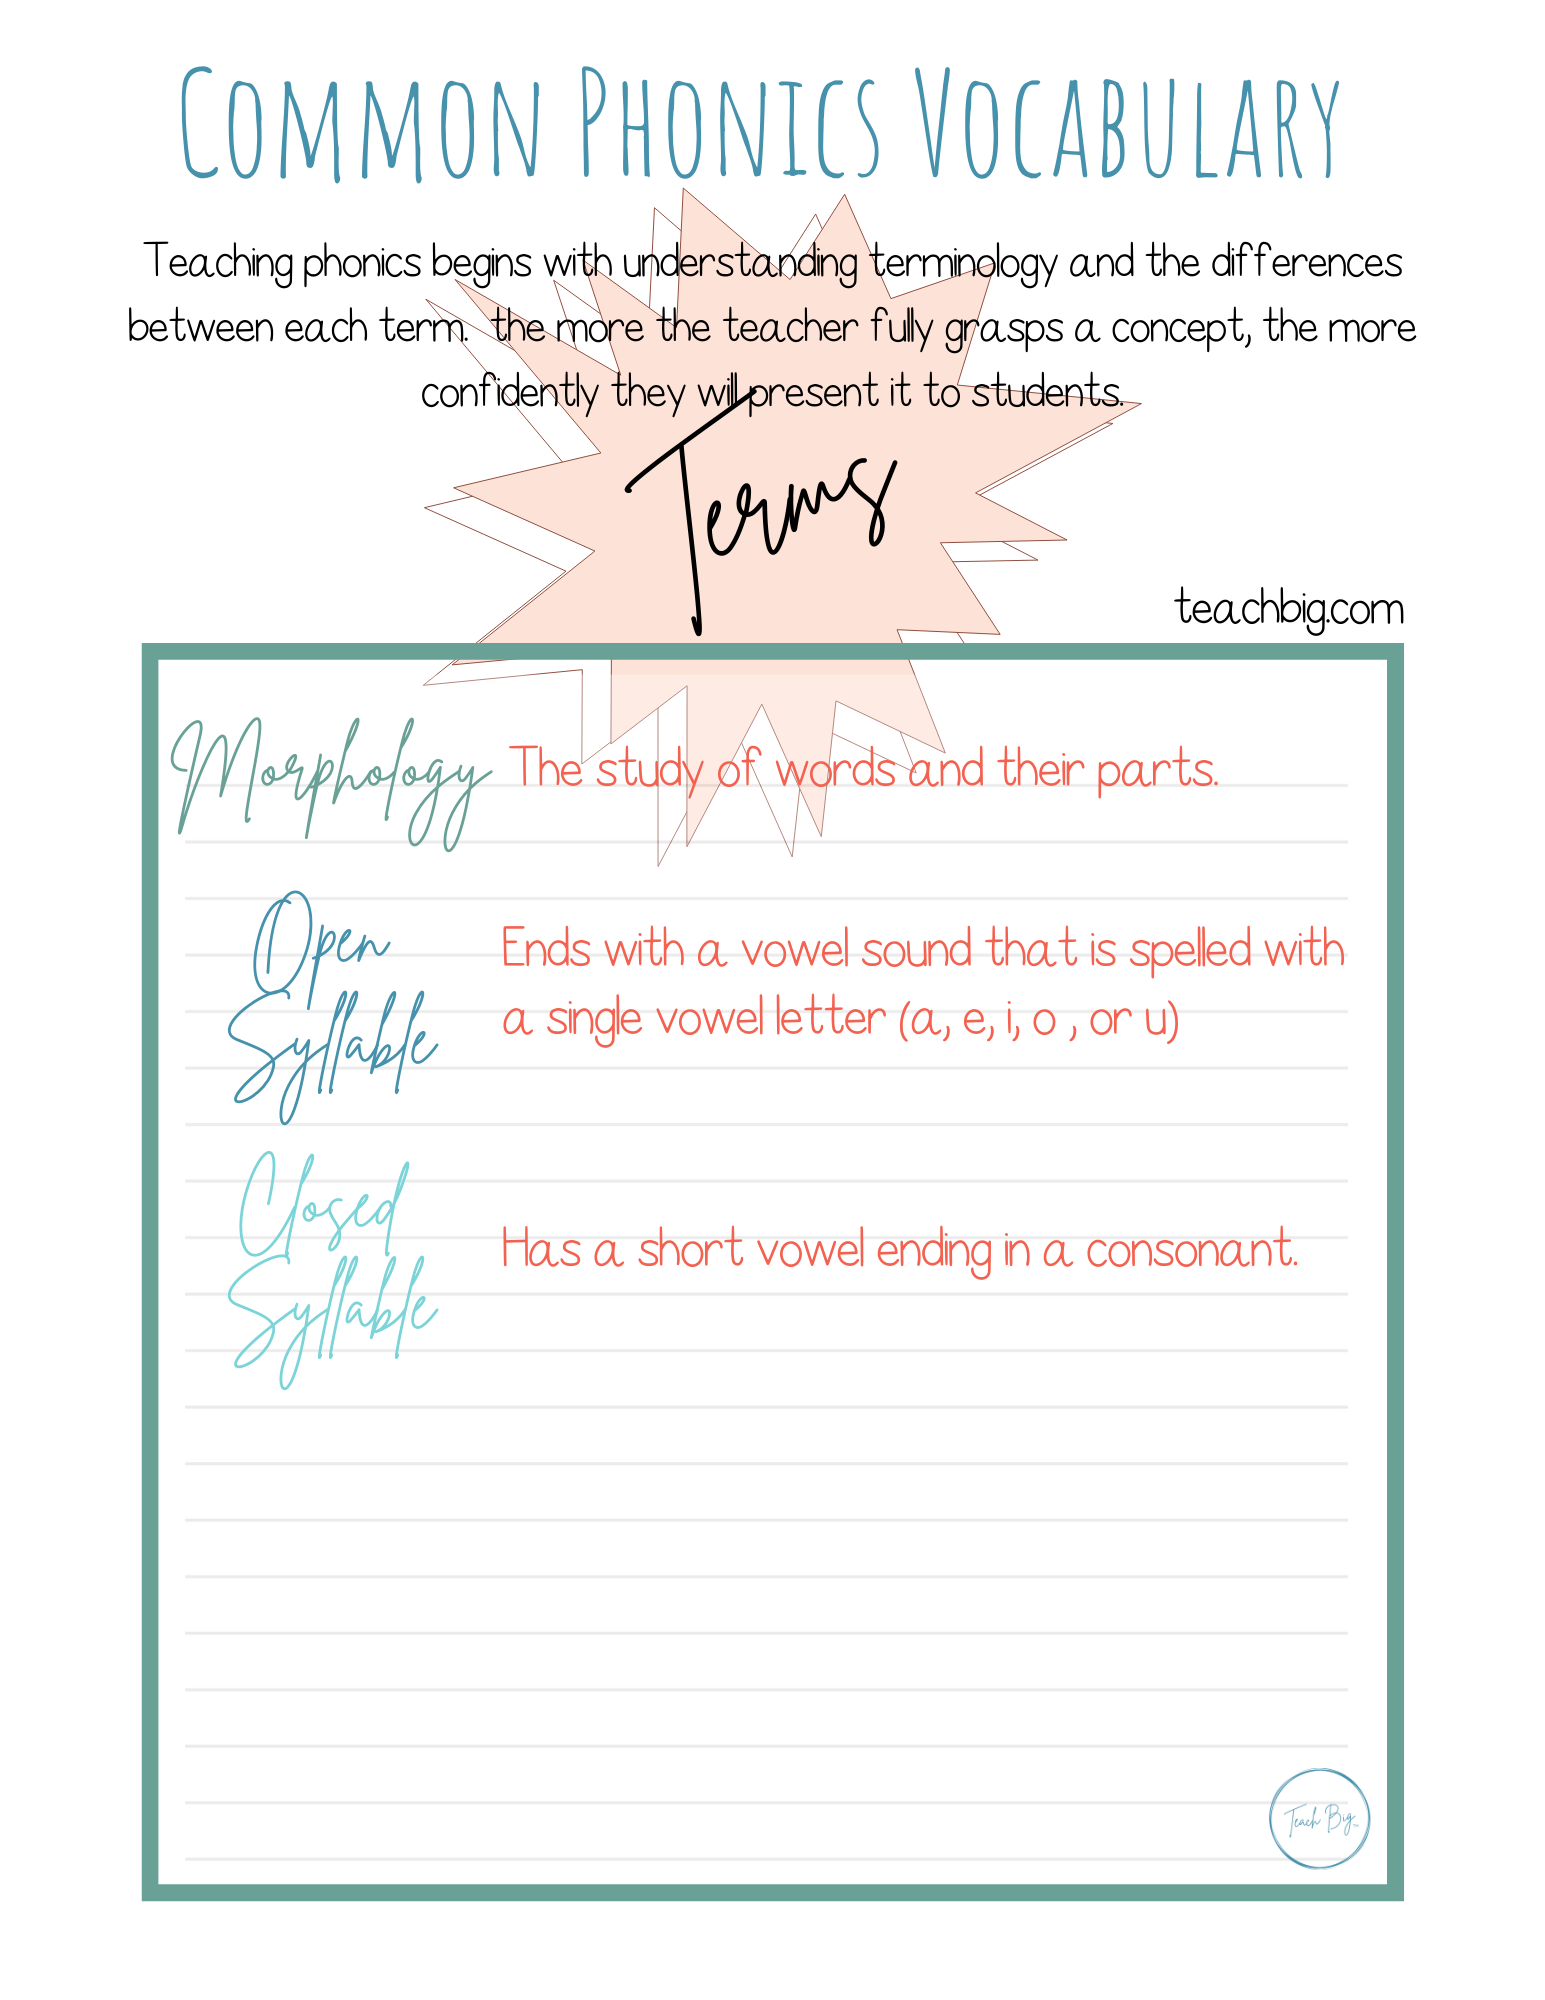 Common Phonics Vocabulary
Teaching phonics begins with understanding terminology and the differences
between each term. the more the teacher fully grasps a concept, the more
confidently they will present it to students.
Terms
teachbig.com
Morphology The study of words and their parts.
Open
Syllable
Ends with a vowel sound that is spelled with
a single vowel letter (a, e, i, o , or u)
Closed
Syllable
Has a short vowel ending in a consonant.
Teach Big